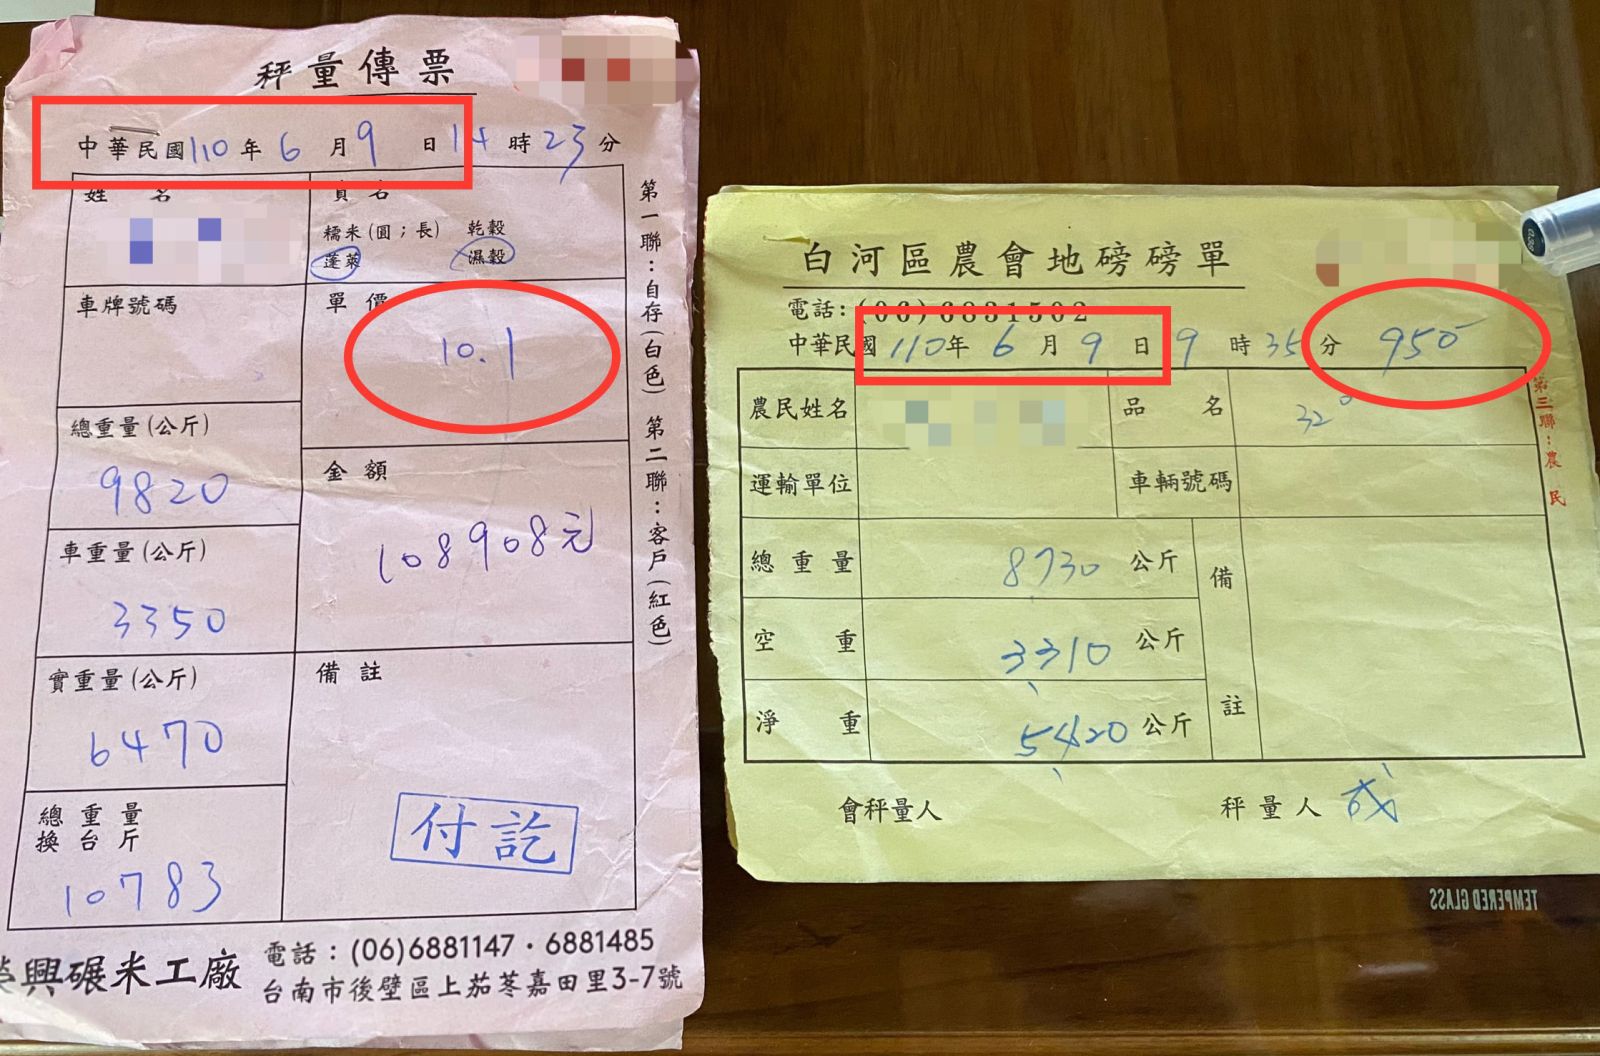 秤量傳票
中華民國110年6月9日14時23分
姓名
貨名
糯米(圓;長) 乾穀
蓬萊 濕穀
車牌號碼
單價
10.1
總重量(公斤)
9820
金額
108908元
車重量(公斤)
3350
實重量(公斤)
6470
備註
付訖
總重量
換台斤
10783
第一聯:自存(白色) 第二聯:客戶(紅色)
興碾米工廠
電話:(06)6881147・6881485
台南市後壁區上茄苳嘉田里3-7號
白河區農會地磅磅單
電話:(06)6831502
中華民國110年6月9日9時35分 950
農民姓名
品名
32°
運輸單位
車輛號碼
總重量 8730 公斤
空重 3310 公斤
淨重 5420 公斤
備註
第三聯:農民
會秤量人
秤量人
TEMPERED GLASS